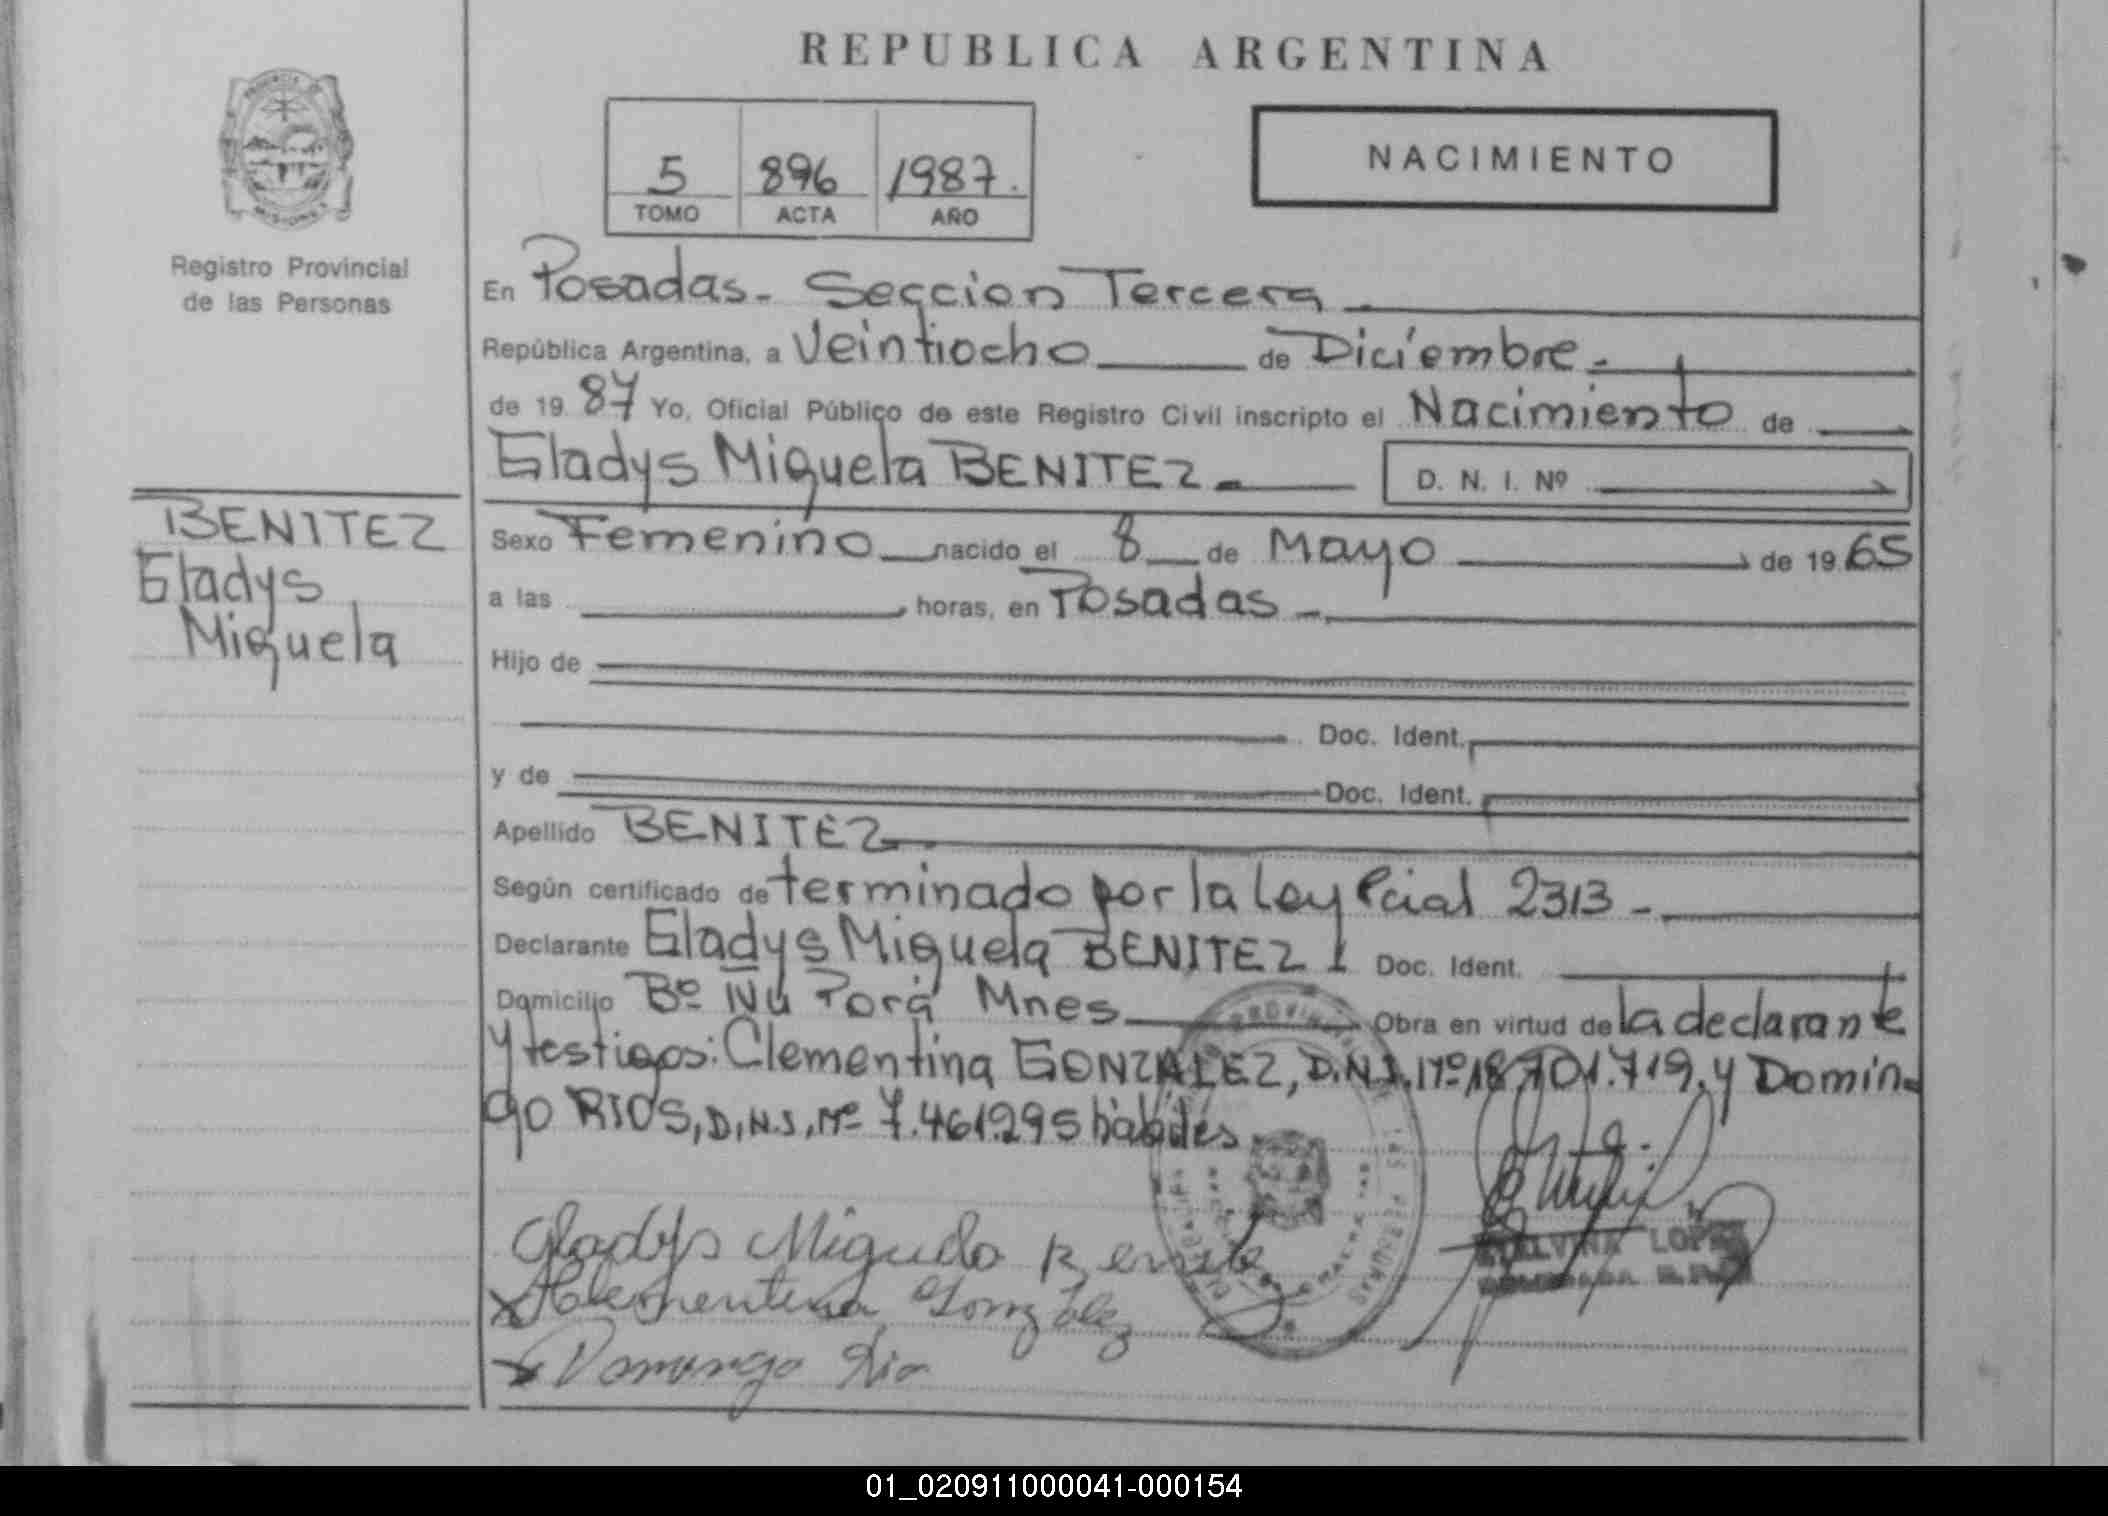 REPUBLICA ARGENTINA
5 896 1987.
TOMO ACTA AÑO
NACIMIENTO
Registro Provincial
de las Personas
BENITEZ
Gladys
Miguela
En Posadas - Seccion Tercera
República Argentina, a Veintiocho de Diciembre.-
de 19 87 Yo, Oficial Público de este Registro Civil inscripto el Nacimiento de
Gladys Miguela BENITEZ.- D. N. I. Nº
Sexo Femenino nacido el 8 de Mayo de 19 65
a las horas, en Posadas -
Hijo de
Doc. Ident.
y de Doc. Ident.
Apellido BENITEZ.
Según certificado de terminado por la Ley Pcial 2313 -
Declarante Gladys Miguela BENITEZ Doc. Ident.
Domicilio Bº Ñu Porá Mnes Obra en virtud de la declarante
y testigos: Clementina GONZALEZ, D.N.I. Nº 18.701.719, y Domin-
go RIOS, D.N.I. Nº 7.461.295 hábiles
Gladys Miguela Benite
Clementina Gonzalez
Domingo Rio
LOPEZ
01_020911000041-000154